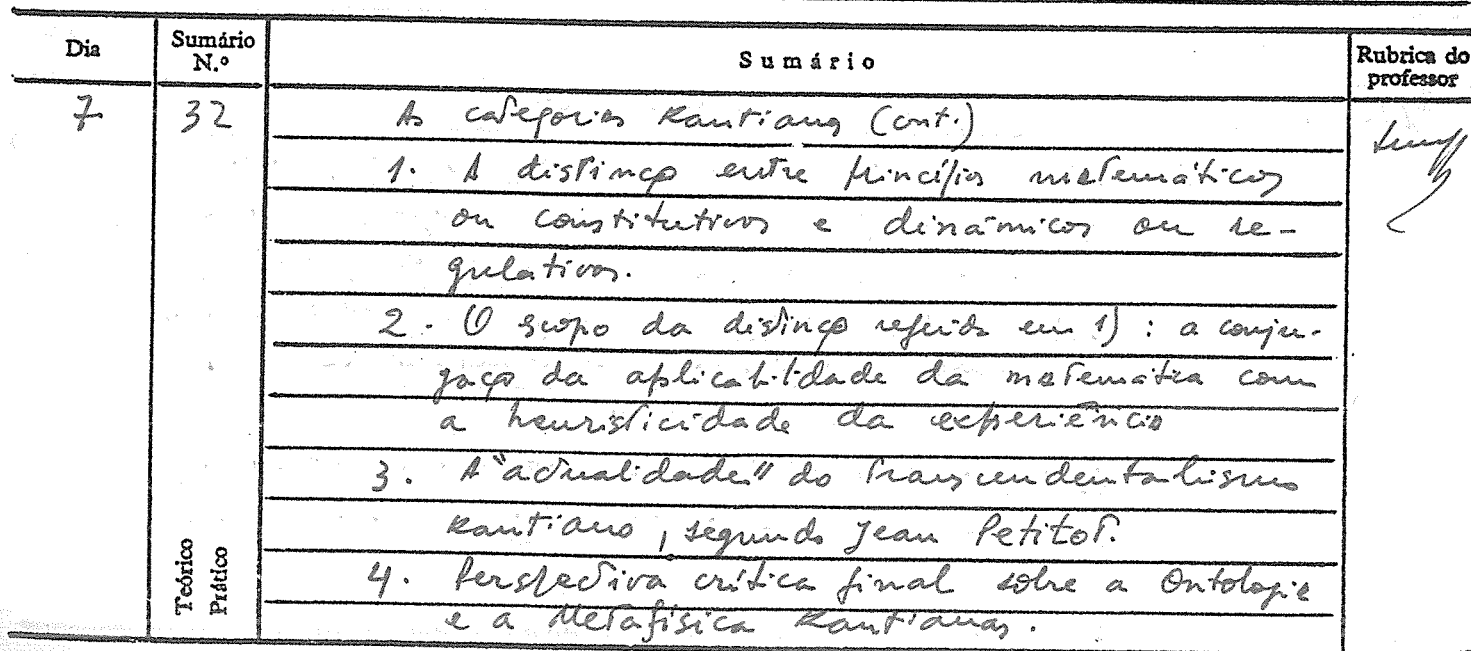 Dia Sumário N.º Sumário Rubrica do professor
7 32 As categorias Kantianas (cont.)
1. A distinção entre princípios matemáticos
ou constitutivos e dinâmicos ou re-
gulativos.
2. O scopo da distinção referida em 1): a conju-
gação da aplicabilidade da matemática com
a heuristicidade da experiência
3. A "actualidade" do transcendentalismo
Kantiano, segundo Jean Petitot.
4. Perspectiva crítica final sobre a Ontologia
e a Metafísica Kantianas.
Teórico
Prático